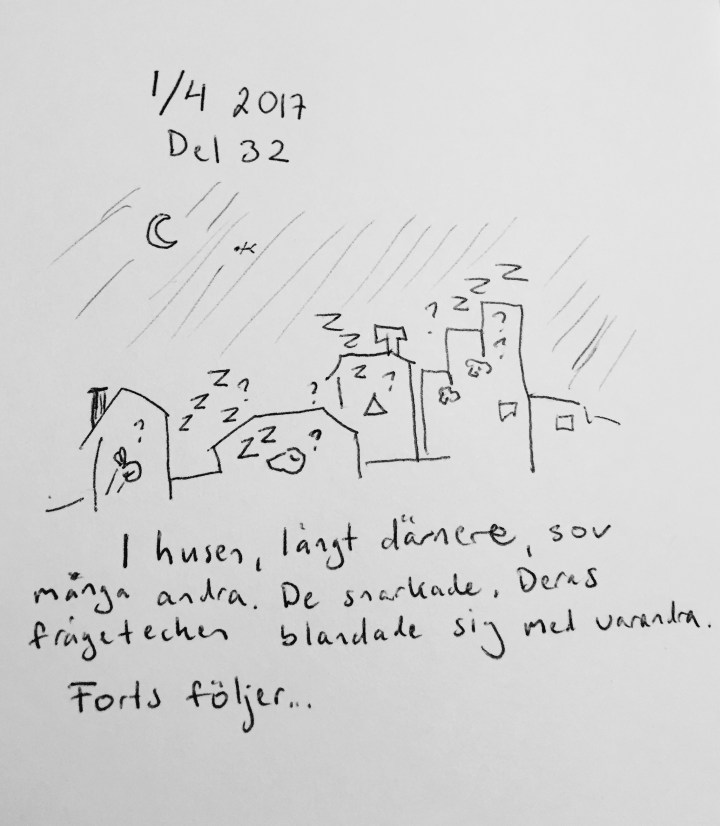 1/4 2017
Del 32
z z z
z z
z z ? ? ?
z ? ? z ? ?
z z ?
z z ?
?
I husen, långt därnere, sov
många andra. De snarkade. Deras
frågetecken blandade sig med varandra.
Forts följer...